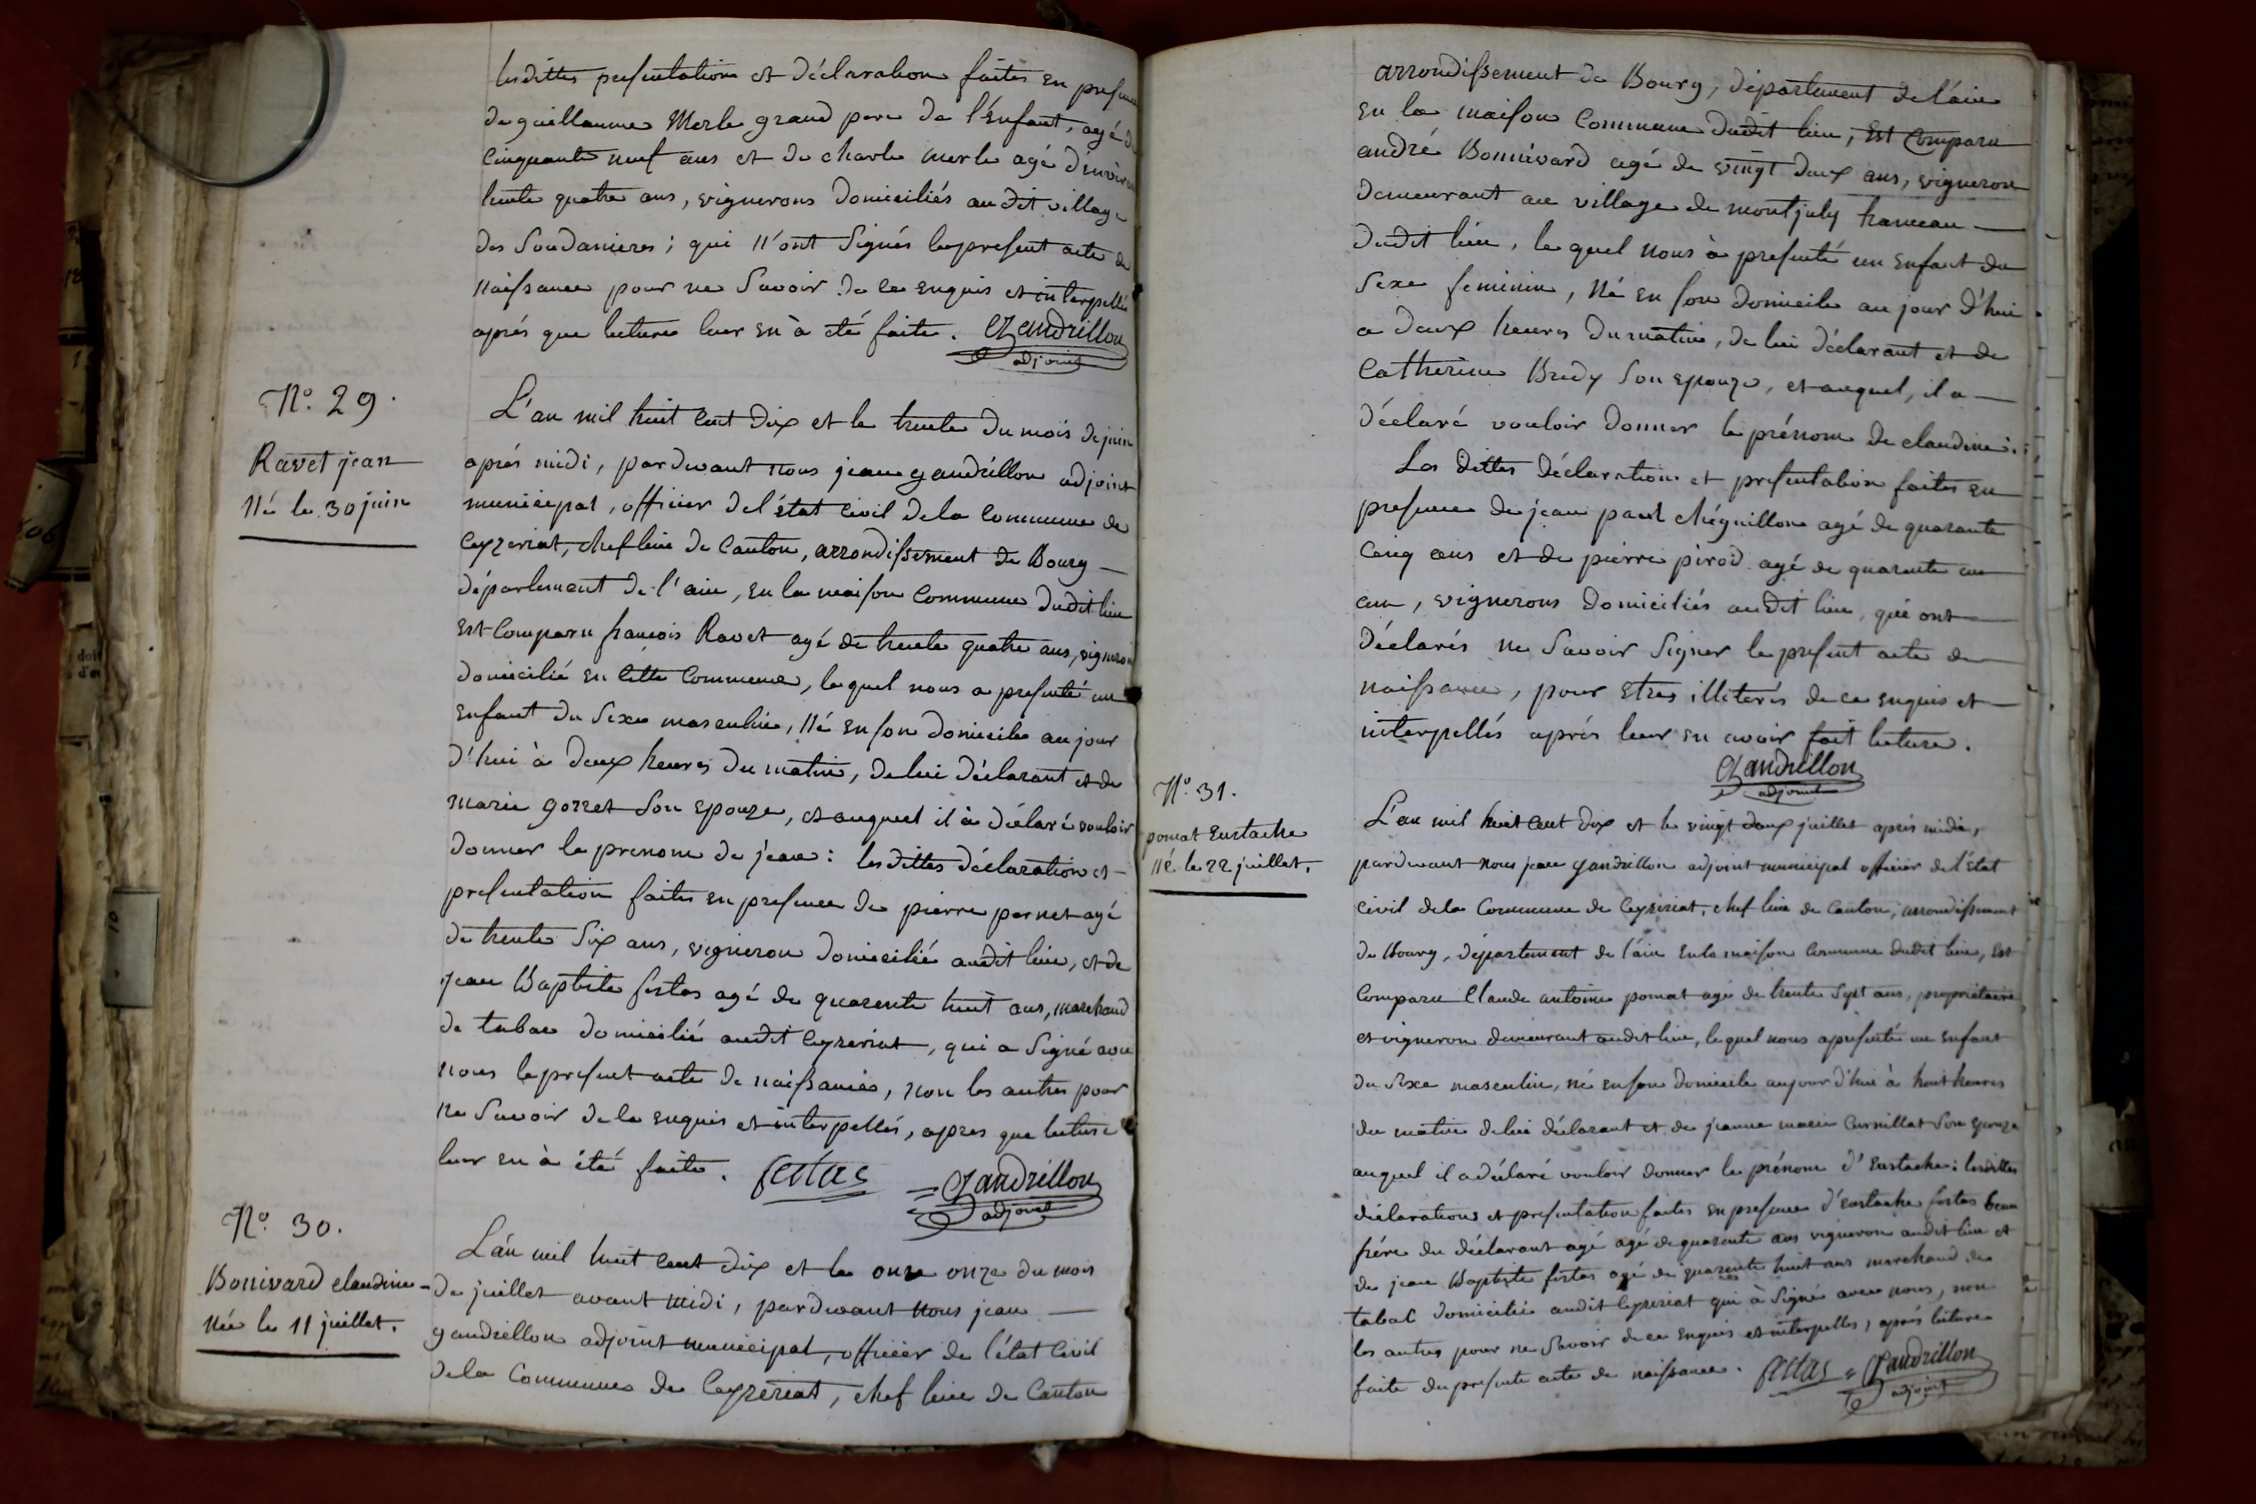 lesdittes presentation et déclaration faites en presence
de guillaume Merle grand pere de l'Enfant, agé de
cinquante neuf ans et de charle merle agé d'environ
trente quatre ans, vignerons domiciliés au dit village
des Soudanieres; qui n'ont signés le present acte de
naissance pour ne savoir de ce enquis et interpellés
aprés que lecture leur en à eté faite. Gandrillon
adjoint
N.o 29.
Ravet jean
né le 30 juin
L'an mil huit cent dix et le trente du mois de juin
aprés midi, pardevant nous jean gandrillon adjoint
municipal, officier del'état civil dela commune de
Ceyzeriat, chef lieu de Canton, arrondissement de Bourg
département de l'ain, en la maison commune dudit lieu
est comparu françois Ravet agé de trente quatre ans, vigneron
domicilié en cette commune, lequel nous a presenté un
enfant du sexe masculin, né en son domicile au jour
d'hui à deux heures du matin, de lui déclarant et de
marie gorret son epouze, et auquel il à déclaré vouloir
donner le prenom de jean: lesdittes déclaration et
presentation faites en presence de pierre pernet agé
de trente six ans, vigneron domicilié audit lieu, et de
jean Baptiste festas agé de quarente huit ans, marchand
de tabac domicilié audit ceyzeriat, qui a signé avec
nous le present acte de naissance, non les autres pour
ne savoir de ce enquis et interpellés, apres que lecture
leur en à été faite. festas Gandrillon
adjoint
N.o 30.
Bonivard claudine
née le 11 juillet.
L'an mil huit cent dix et le onze onze du mois
de juillet avant midi, pardevant nous jean
gandrillon adjoint municipal, officier de l'état civil
dela Commune de Ceyzériat, chef lieu de Canton
arrondissement de Bourg, département de l'ain
en la maison commune dudit lieu, est comparu
andré Bonnivard agé de vingt deux ans, vigneron
demeurant au village de montjuly hameau
dudit lieu, le quel nous à presenté un enfant du
sexe feminin, né en son domicile au jour d'hui
a deux heures du matin, de lui déclarant et de
Catherine Bredy son epouze, et auquel, il a
déclaré vouloir donner le prénom de claudine:
Les dittes déclaration et presentation faites en
presence de jean paul chéguillon agé de quarante
cinq ans et de pierre pirod agé de quarente un
an, vignerons domiciliés audit lieu, qui ont
déclarés ne savoir signer le present acte de
naissance, pour etres illiterés de ce enquis et
interpellés aprés leur en avoir fait lecture.
Gandrillon
adjoint
N.o 31.
pomat Eustache
né le 22 juillet.
L'an mil huit cent dix et le vingt deux juillet aprés midi,
pardevant nous jean gandrillon adjoint municipal officier del'état
civil dela Commune de Ceyzeriat, chef lieu de canton, arrondissement
de Bourg, département de l'ain en la maison commune dudit lieu, est
comparu Claude antoine pomat agé de trente sept ans, propriétaire
et vigneron demeurant audit lieu, lequel nous a presenté un enfant
du sexe masculin, né en son domicile aujour d'hui à huit heures
du matin de lui déclarant et de jeanne marie Curnillat son epouze
auquel il a déclaré vouloir donner le prénom d'Eustache: lesdittes
déclarations et presentation faites en presence d'eustache festas beau
frére du déclarant agé agé de quarente ans vigneron audit lieu et
de jean Baptiste festas agé de quarente huit ans marchand de
tabac domicilié audit Ceyzeriat qui à signé avec nous, non
les autres pour ne savoir de ce enquis et interpellés, aprés lecture
faite du presente acte de naissance. festas Gandrillon
adjoint